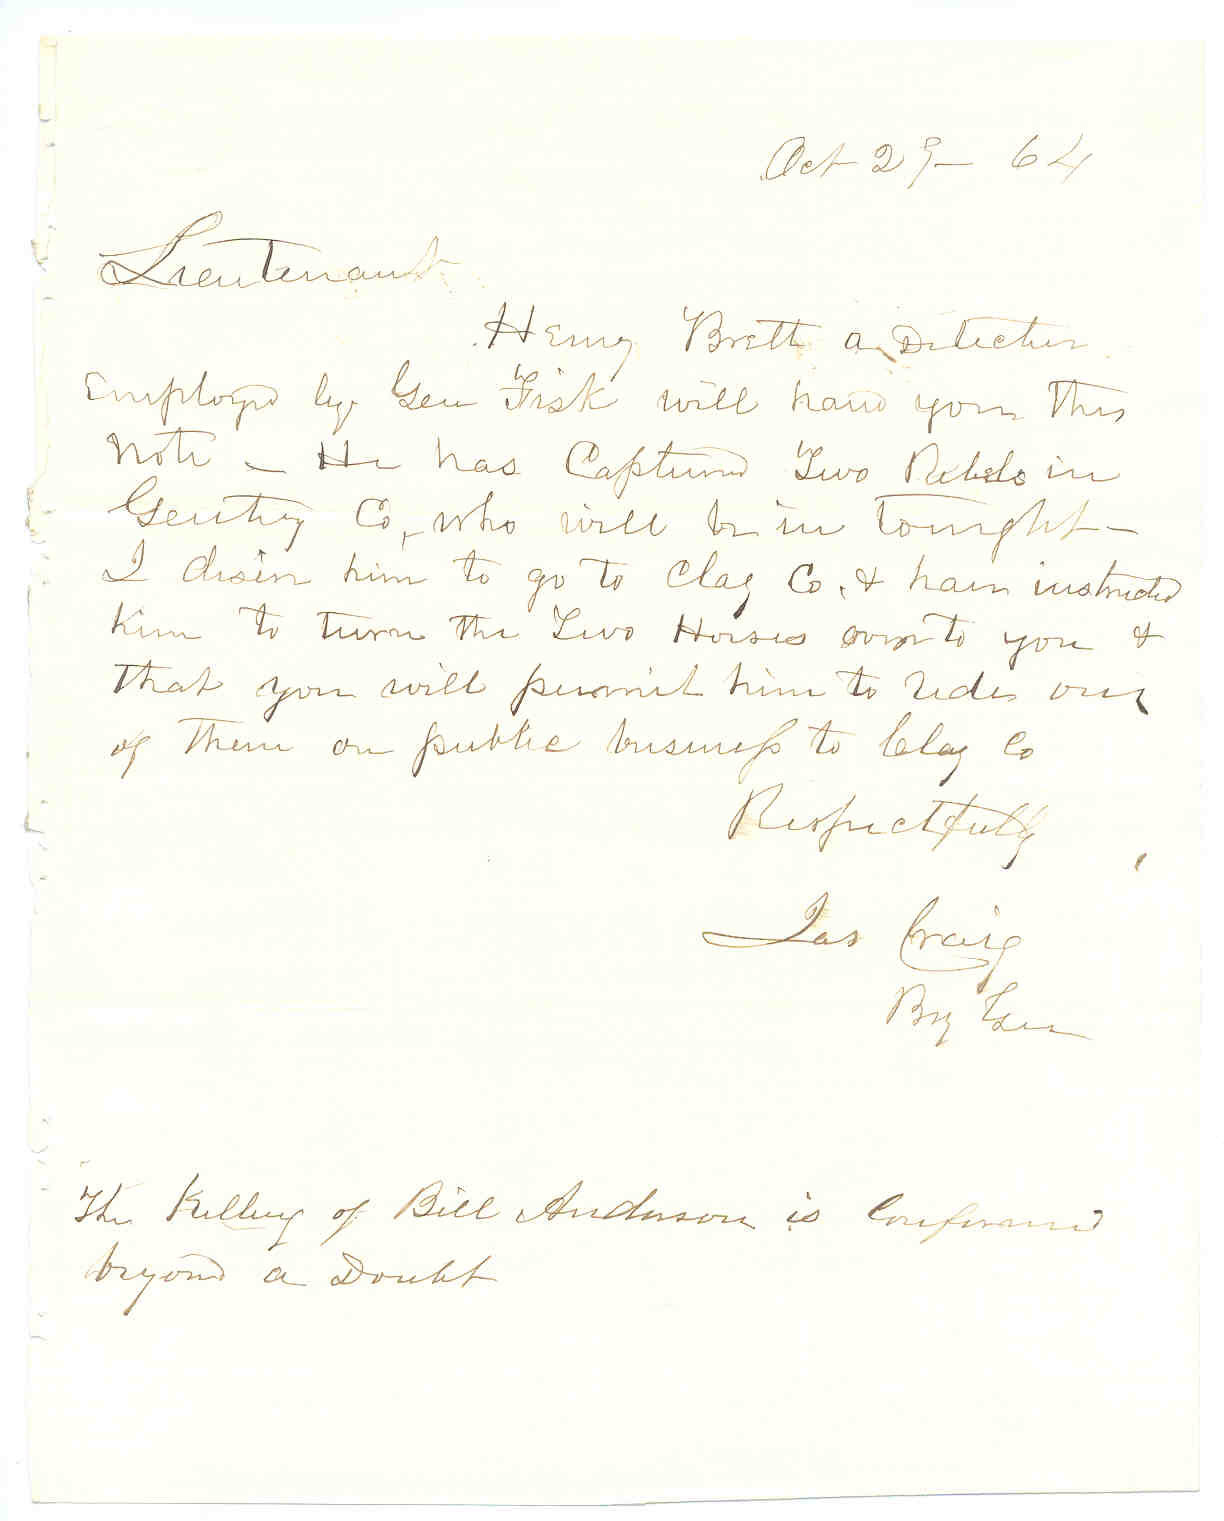 Oct 29 - 64
Lieutenant
Henry Brett a Detective
Employed by Gen Fisk will hand you This
Note - He has Captured Two Rebels in
Gentry Co, who will be in Tonight -
I desire him to go to Clay Co. & have instructed
him to turn the Two Horses over to you &
that you will permit him to ride one
of them on public business to Clay Co
Respectfully
Jas Craig
Brg Gen
The Killing of Bill Anderson is Confirmed
beyond a Doubt